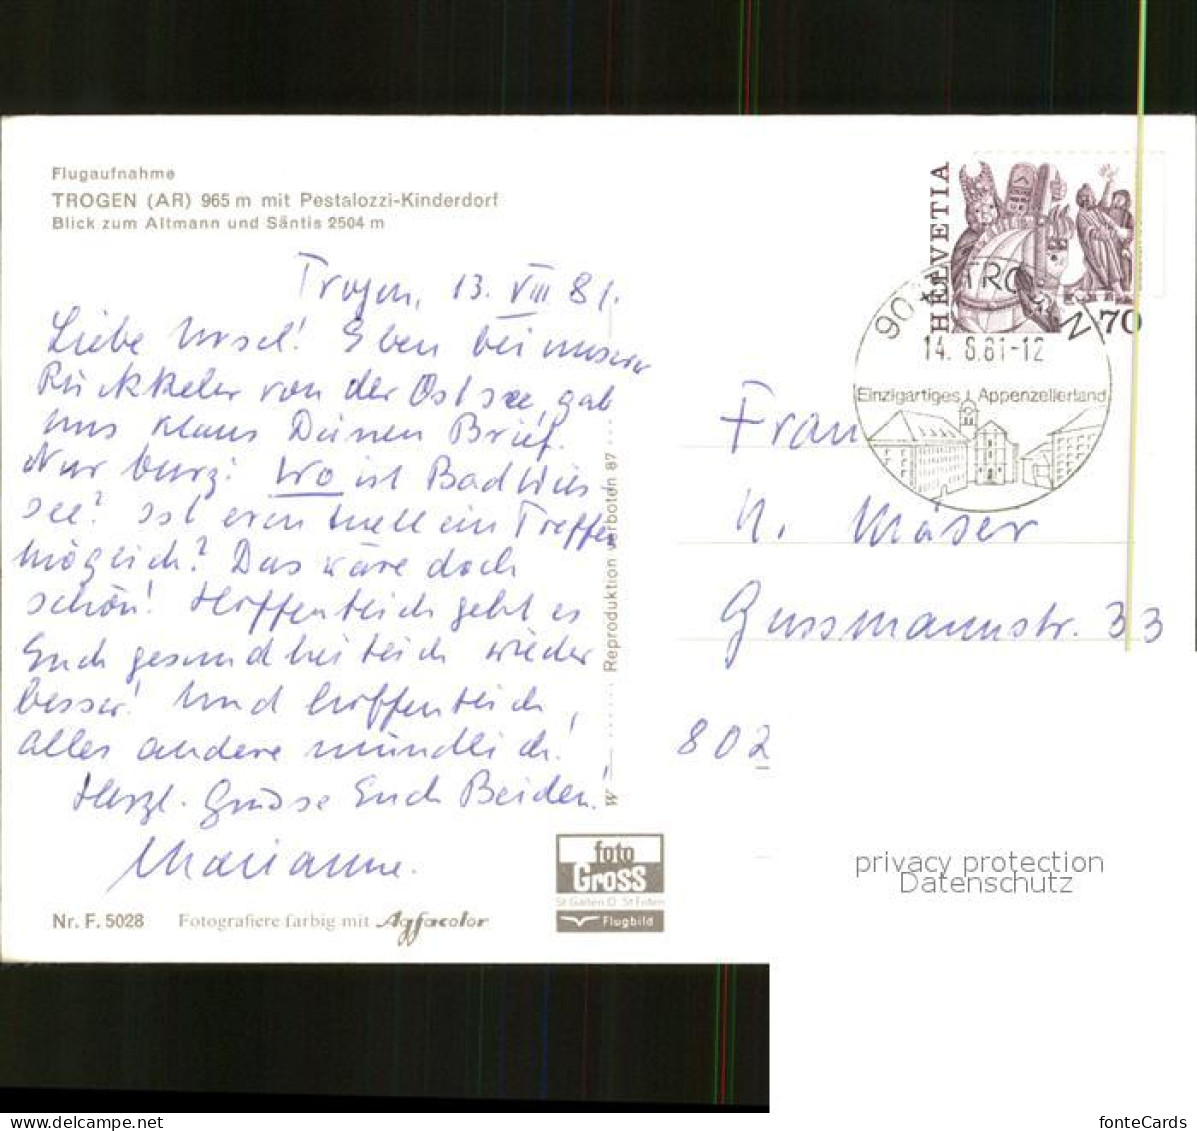 Flugaufnahme
TROGEN (AR) 965 m mit Pestalozzi-Kinderdorf
Blick zum Altmann und Säntis 2504 m
Trogen, 13. VIII 81.
Liebe Ursel! Eben bei unserer
Rückkehr von der Ostsee, gab
uns Klaus Deinen Brief.
Nur kurz: Wo ist Bad Wies-
see? Ist eventuell ein Treffen
möglich? Das wäre doch
schön! Hoffentlich geht es
Euch gesundheitlich wieder
besser! Und hoffentlich,
alles andere mündlich!
Herzl. Grüsse Euch Beiden!
Marianne.
Nr. F. 5028 Fotografiere farbig mit Agfacolor
W ...... Reproduktion verboten 87 ...
foto
Gross
St. Gallen O St. Fiden
Flugbild
HELVETIA
70
90 TROGEN
14. 8.81-12
Einzigartiges Appenzellerland
Frau
U. Mäser
Gussmannstr. 33
802
privacy protection
Datenschutz
fonteCards